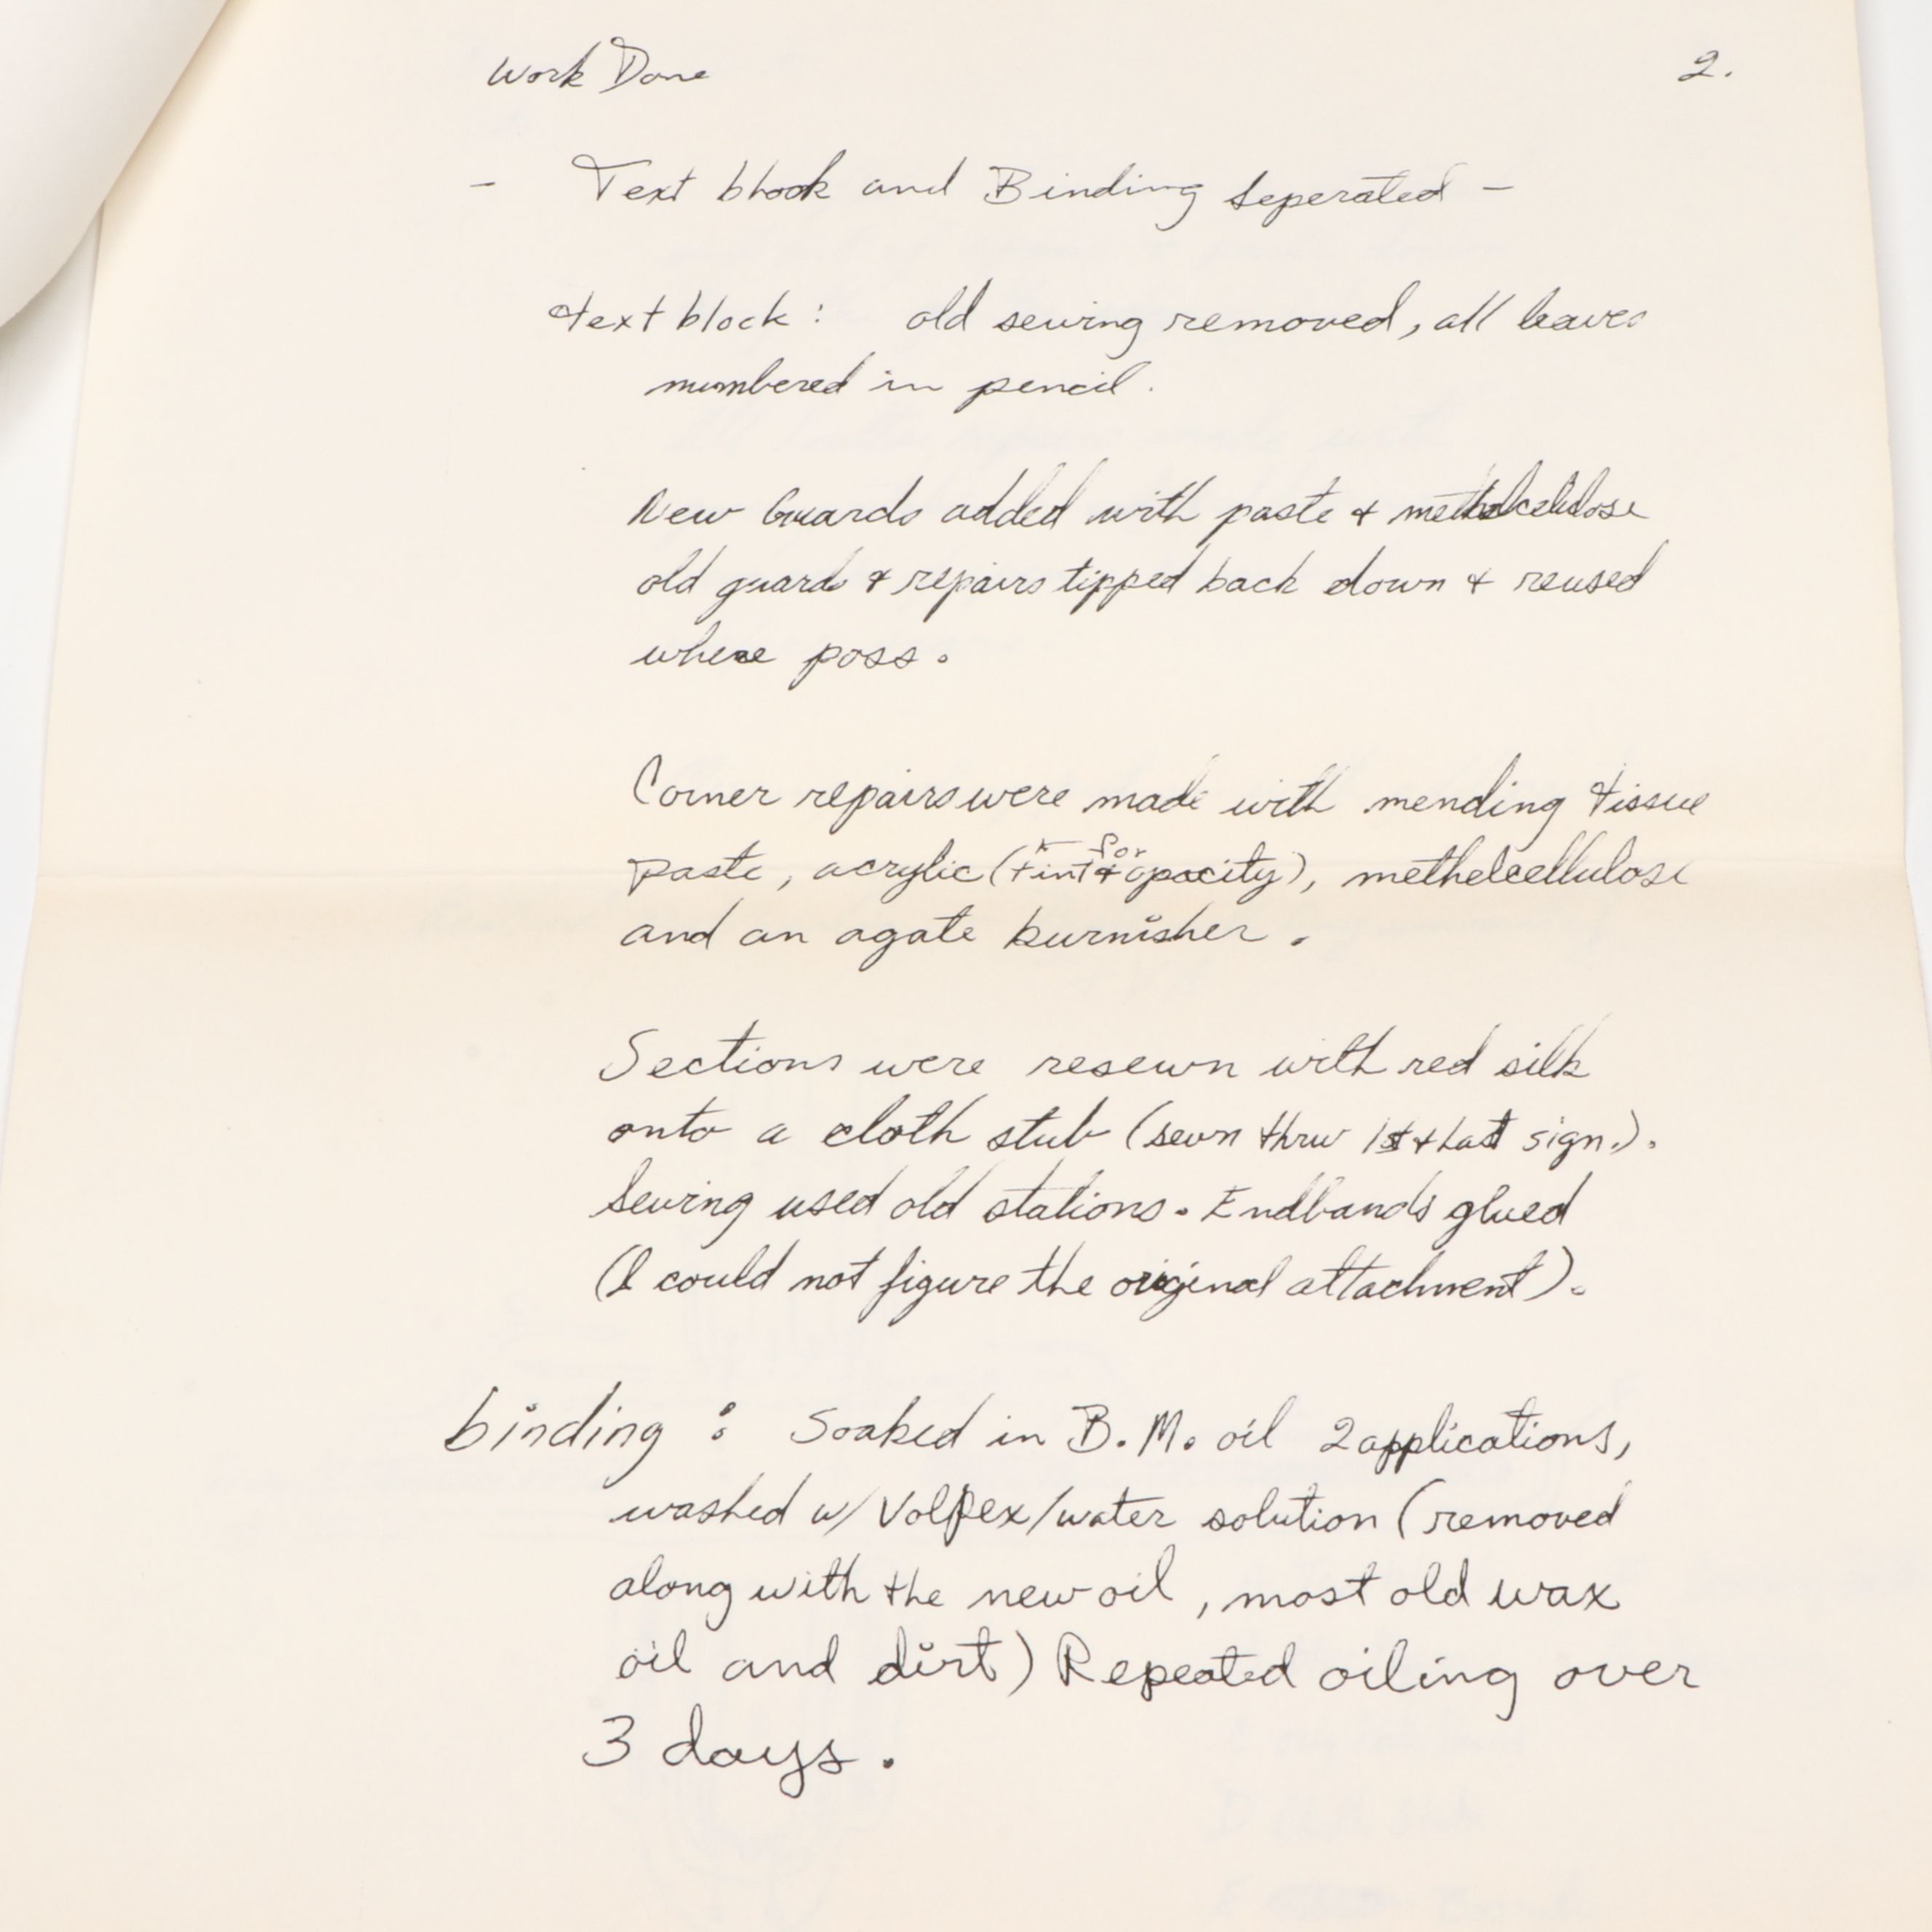 Work Done 2.
- Text block and Binding Seperated -
text block: old sewing removed, all leaves
numbered in pencil.
New Guards added with paste & methelcelulose
old guards & repairs tipped back down & reused
where poss.
Corner repairs were made with mending tissue
paste, acrylic (tint & for opacity), methelcellulose
and an agate burnisher.
Sections were resewn with red silk
onto a cloth stub (sewn thru 1st & last sign.).
Sewing used old stations. Endbands glued
(I could not figure the original attachment).
binding: Soaked in B.M. oil 2 applications,
washed w/ Volpex/water solution (removed
along with the new oil, most old wax
oil and dirt) Repeated oiling over
3 days.